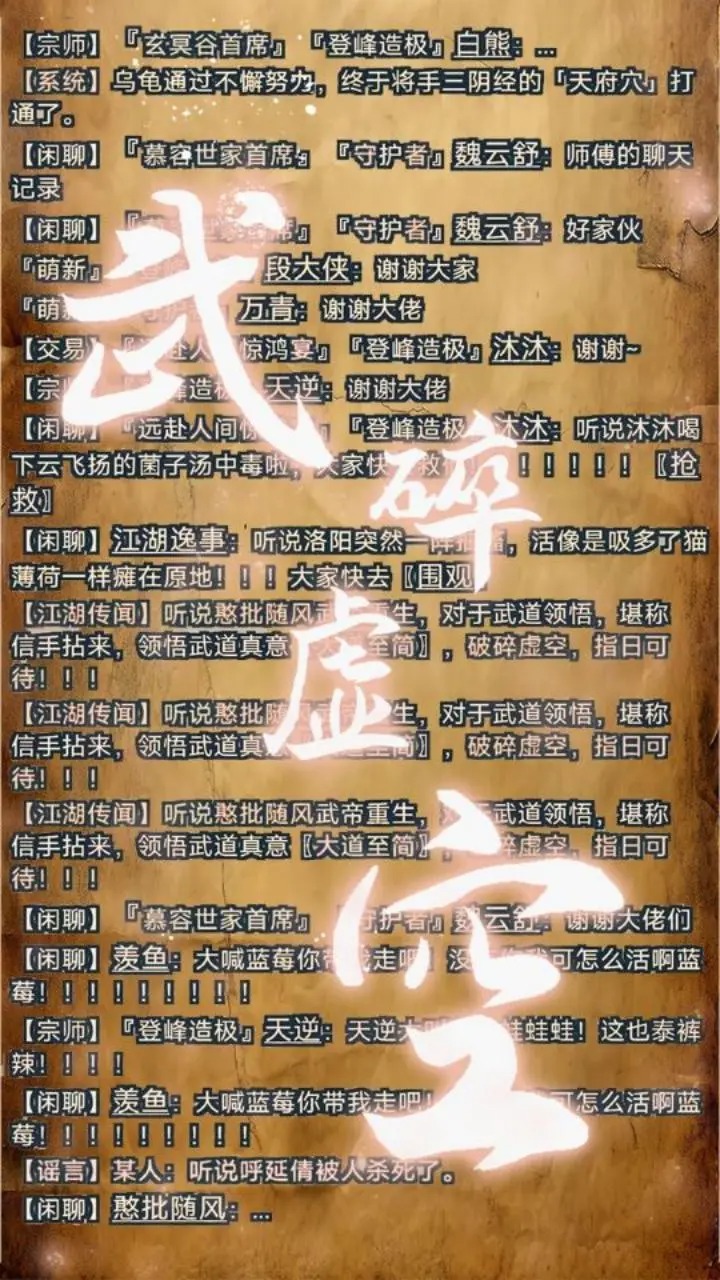 【宗师】『玄冥谷首席』『登峰造极』白熊：...
【系统】乌龟通过不懈努力，终于将手三阴经的「天府穴」打
通了。
【闲聊】『慕容世家首席』『守护者』魏云舒：师傅的聊天
记录
【闲聊】『席』『守护者』魏云舒：好家伙
『萌新』段大侠：谢谢大家
『萌 万青：谢谢大佬
【交易】赴人 惊鸿宴』『登峰造极』沐沐：谢谢~
【宗 峰造极 天逆：谢谢大佬
【闲聊】『远赴人间惊 』『登峰造极 沐沐：听说沐沐喝
下云飞扬的菌子汤中毒啦，大家快 救 ！！！！！〖抢
救〗
【闲聊】江湖逸事：听说洛阳突然一阵 ，活像是吸多了猫
薄荷一样瘫在原地！！！大家快去〖围观
【江湖传闻】听说憨批随风武帝重生，对于武道领悟，堪称
信手拈来，领悟武道真意 至简〗，破碎虚空，指日可
待！！！
【江湖传闻】听说憨批随 生，对于武道领悟，堪称
信手拈来，领悟武道真意 道至简〗，破碎虚空，指日可
待！！！
【江湖传闻】听说憨批随风武帝重生，对于武道领悟，堪称
信手拈来，领悟武道真意〖大道至简〗， 碎虚空，指日可
待！！！
【闲聊】『慕容世家首席』 守护者』魏云舒：谢谢大佬们
【闲聊】羡鱼：大喊蓝莓你带我走吧！没 可怎么活啊蓝
莓！！！！！！！！！
【宗师】『登峰造极』天逆：天逆大 哇哇哇！这也泰裤
辣！！！！
【闲聊】羡鱼：大喊蓝莓你带我走吧！ 可怎么活啊蓝
莓！！！！！！！！！
【谣言】某人：听说呼延倩被人杀死了。
【闲聊】憨批随风：...
武
碎
虚
空